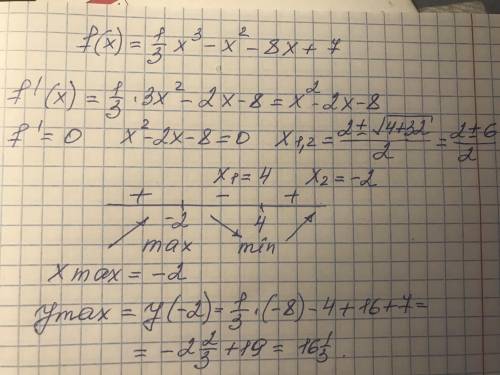 f(x) = 1/3 x³ - x² - 8x + 7
f'(x) = 1/3 · 3x² - 2x - 8 = x² - 2x - 8
f' = 0 x² - 2x - 8 = 0 x₁,₂ = (2 ± √(4+32))/2 = (2 ± 6)/2
x₁ = 4 x₂ = -2
+ - +
-2 4
max min
x max = -2
y max = y(-2) = 1/3 · (-8) - 4 + 16 + 7 =
= -2 2/3 + 19 = 16 1/3.